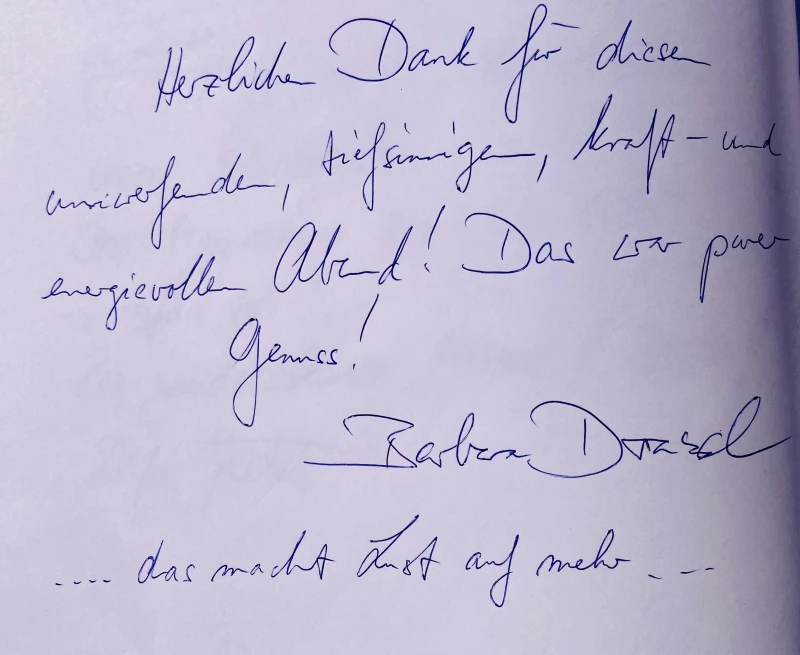 Herzlichen Dank für diesen
umwerfenden, tiefsinnigen, kraft- und
energievollen Abend! Das war purer
Genuss!
Barbara
.... das macht Lust auf mehr ...